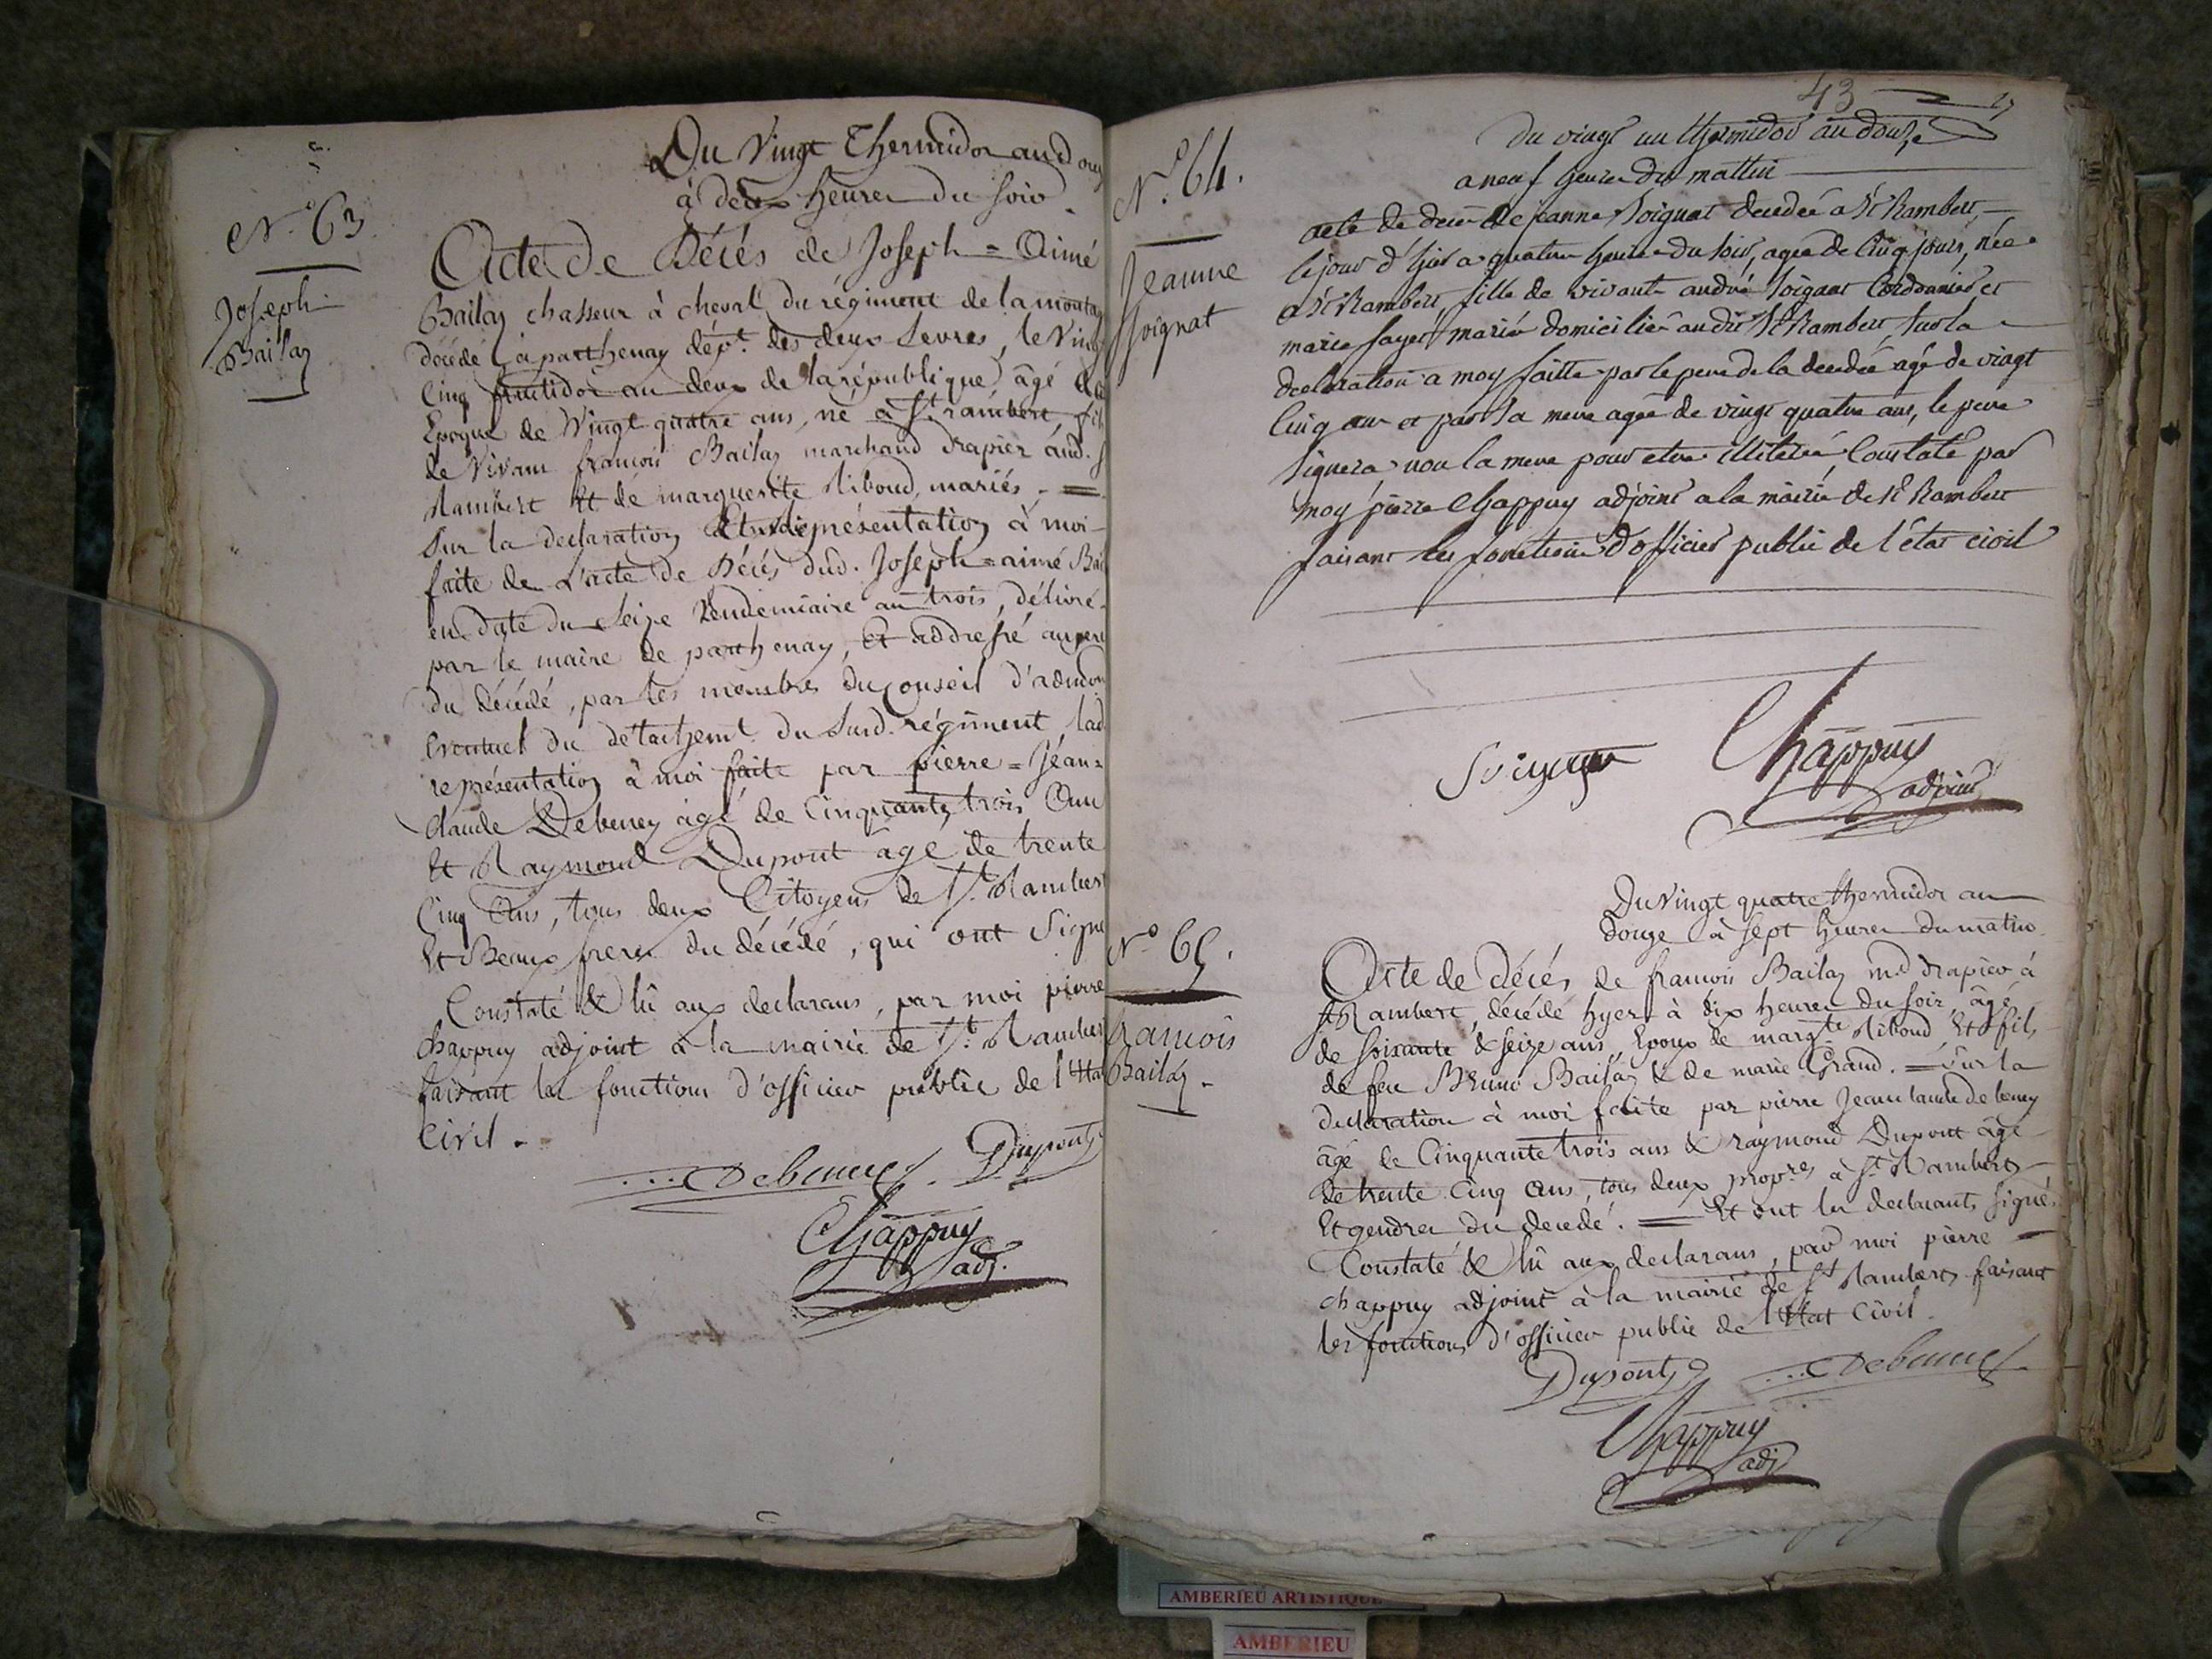 N.° 63
Joseph
Bailly
Du Vingt Thermidor an douz
à deux heures du soir
Acte de Décés de Joseph = Aimé
Bailly chasseur à cheval du régiment de la montag
décédé à parthenay dép.t des deux Sevres, le Vingt
Cinq fructidor an deux de la république, âgé à l
Epoque de Vingt quatre ans, né à S.t rambert, fils
de Vivant francois Bailly marchand drapier aud. S
Rambert et de marguerite Riboud, mariés. =
Sur la declaration et représentation à moi
faite de L'acte de Décés dud. Joseph = aimé Bail
en date du Seize Vendemiaire an trois, délivré
par le maire de parthenay, et addressé au pere
du décédé, par les membres du Conseil d'admon
Eventuel du détachemt. du Susd. régiment, lad
représentation à moi faite par pierre = Jean =
claude Debeney agé de Cinquante trois Ans
et Raymond Dupont age de trente
Cinq Ans, tous deux Citoyens de S.t Rambert
et Beaux freres du décédé, qui ont Signé
Constaté & lû aux declarans, par moi pierre
chappuy adjoint à la mairie de S.t Rambert
faisant les fonctions d'officier public de l'Etat
Civil.
Debeney Dupont
Chappuy
adj.
43
N.° 64.
Jeanne
Soignat
Du vingt un thermidor an douze
a neuf heures du mattin
acte de deces de jeanne Soignat decedée a St Rambert,
le jour d'hier a quatre heures du soir, agée de Cinq jours, née
a St Rambert, fille de vivants andré Soignat Cordonnier et
marie fayet mariés domiciliés au dit St Rambert, sur la
declaration a moy faitte par le pere de la decedée agé de vingt
Cinq ans et par sa mere agée de vingt quatre ans, le pere
signera, non la mere pour etre illiterée, Constaté par
moy pierre Chappuy adjoint a la mairie de St Rambert
faisant les fonctions d'officier public de l'état civil
Soignat
Chappuy
adjoint
N° 65.
francois
Bailly
Du Vingt quatre thermidor an
douze à sept heures du matin
Acte de décés de francois Bailly m.d drapier à
St Rambert, décédé hyer à dix heures du soir, âgé
de soixante & seize ans, Epoux de marg.te Riboud, et fils
de feu Bruno Bailly & de marie Grand. = Sur la
declaration à moi faite par pierre Jean claude debeney
âgé de Cinquante trois ans & raymond Dupont âgé
de trente Cinq ans, tous deux prop.res à St Rambert
et gendres du decedé. = Et ont les declarants signés
Constaté & lû aux declarans, par moi pierre =
chappuy adjoint à la mairie de St Rambert faisant
les fonctions d'officier public de l'Etat Civil.
Dupont Debeney
Chappuy
adj
AMBERIEU ARTISTIQUE
AMBERIEU